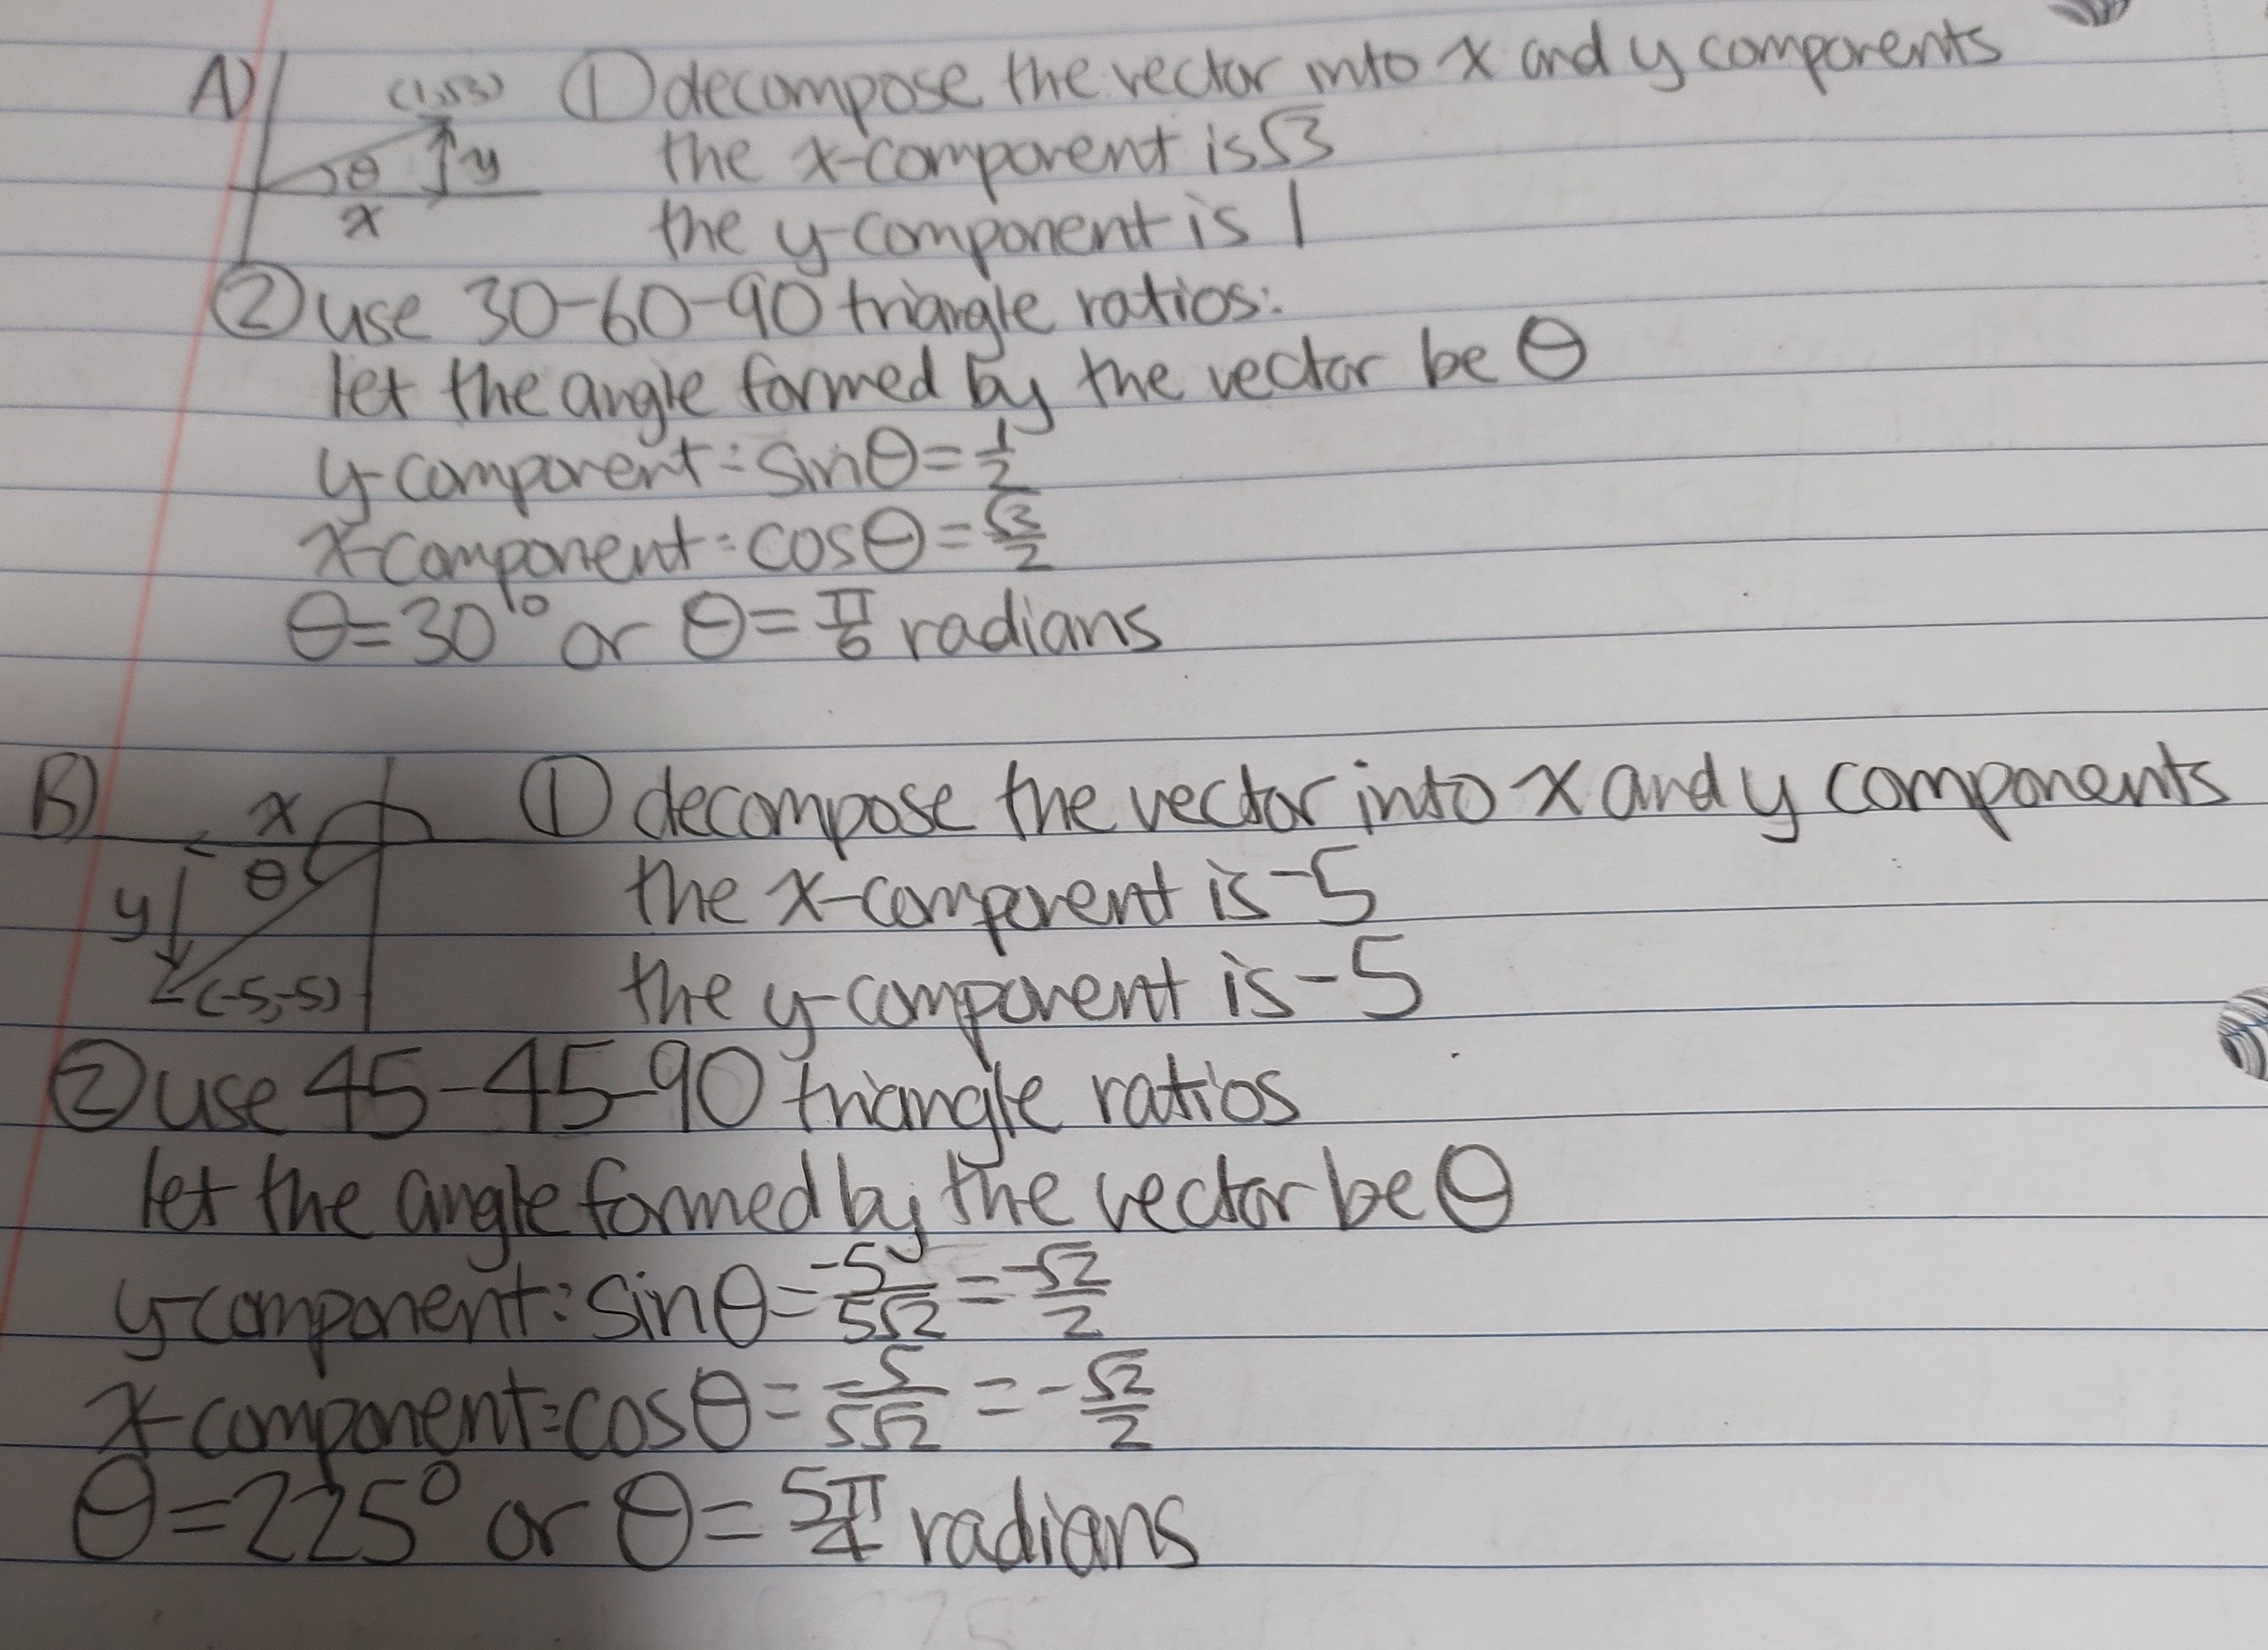 A) (1,√3) ① decompose the vector into x and y components
θ y the x-component is √3
x the y-component is 1
② use 30-60-90 triangle ratios:
let the angle formed by the vector be θ
y-component: sinθ = 1/2
x-component: cosθ = √3/2
θ = 30° or θ = π/6 radians
B) x ① decompose the vector into x and y components
y θ the x-component is -5
(-5,-5) the y-component is -5
② use 45-45-90 triangle ratios
let the angle formed by the vector be θ
y-component: sinθ = -5/5√2 = -√2/2
x-component: cosθ = -5/5√2 = -√2/2
θ = 225° or θ = 5π/4 radians